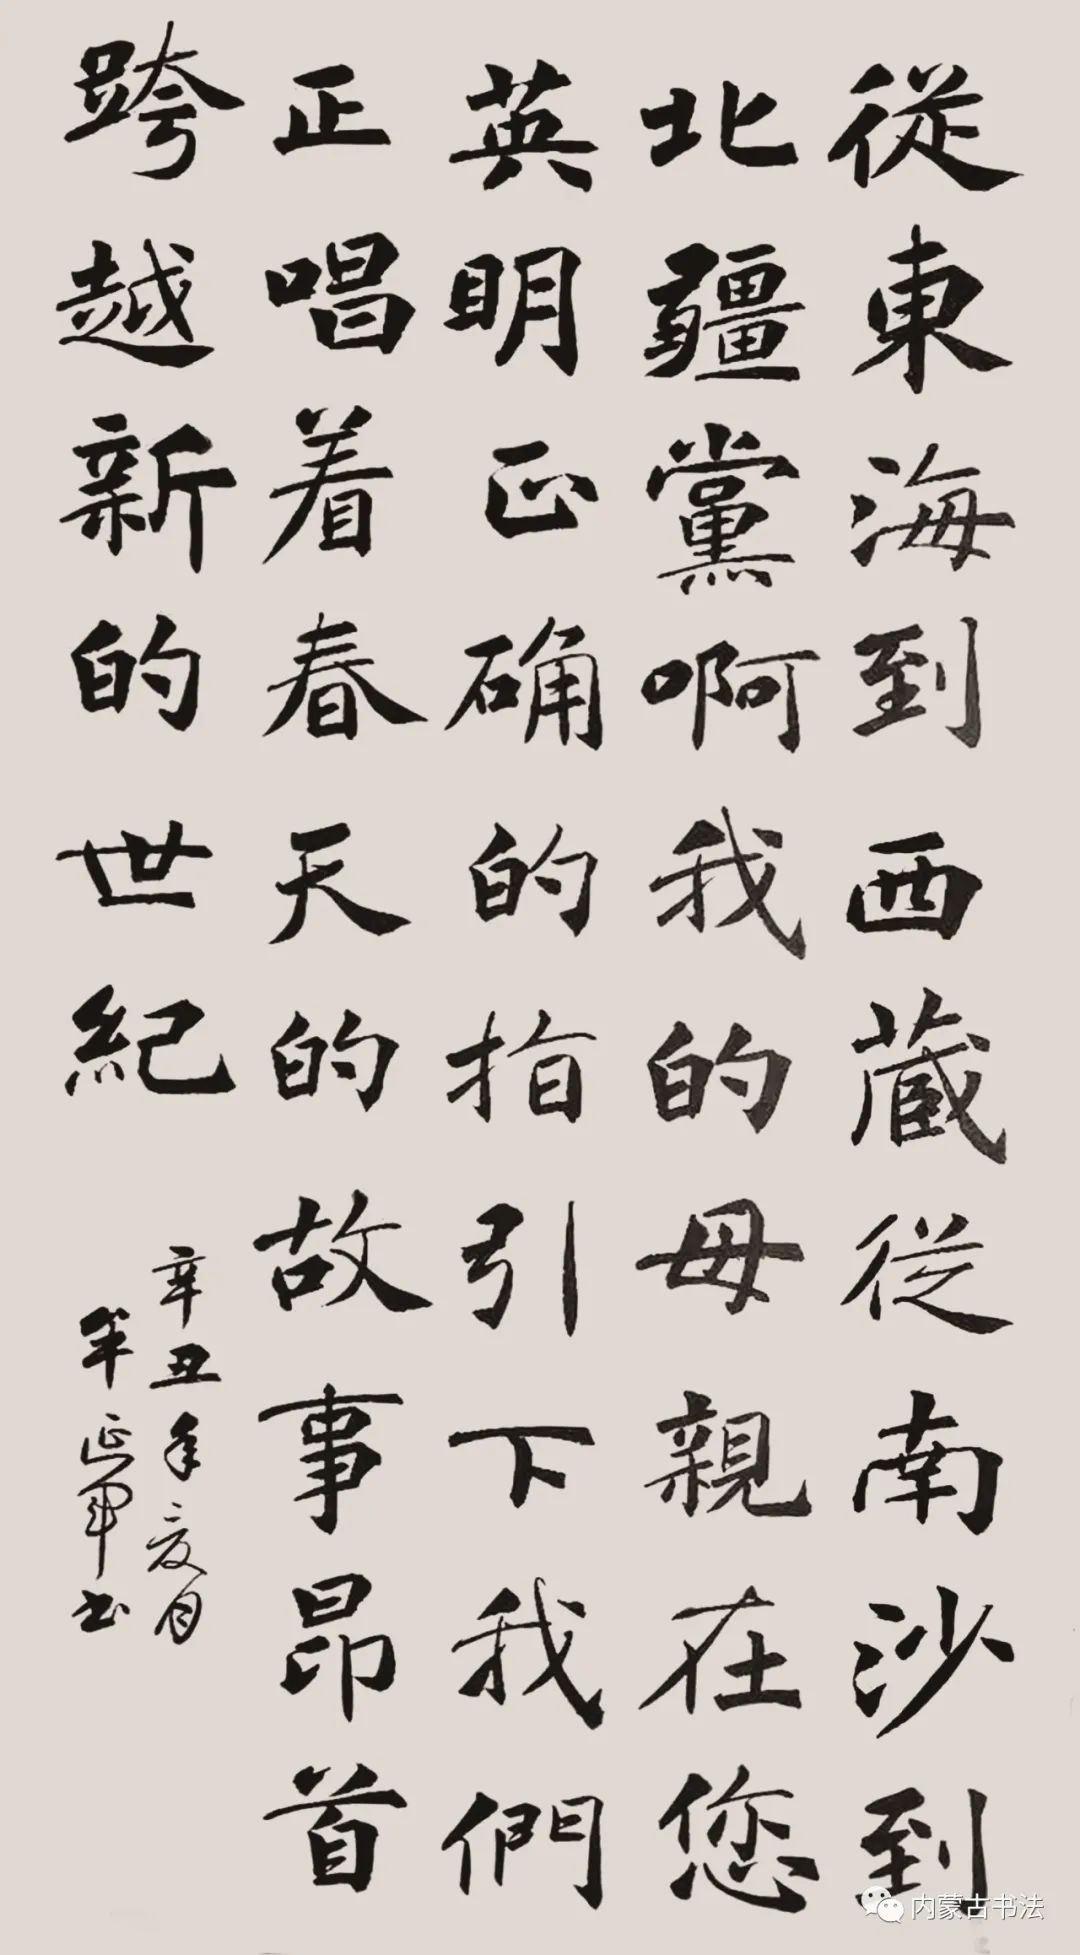 從東海到西藏從南沙到
北疆黨啊我的母親在您
英明正确的指引下我們
正唱着春天的故事昂首
跨越新的世紀
辛丑年夏月
延軍书
内蒙古书法